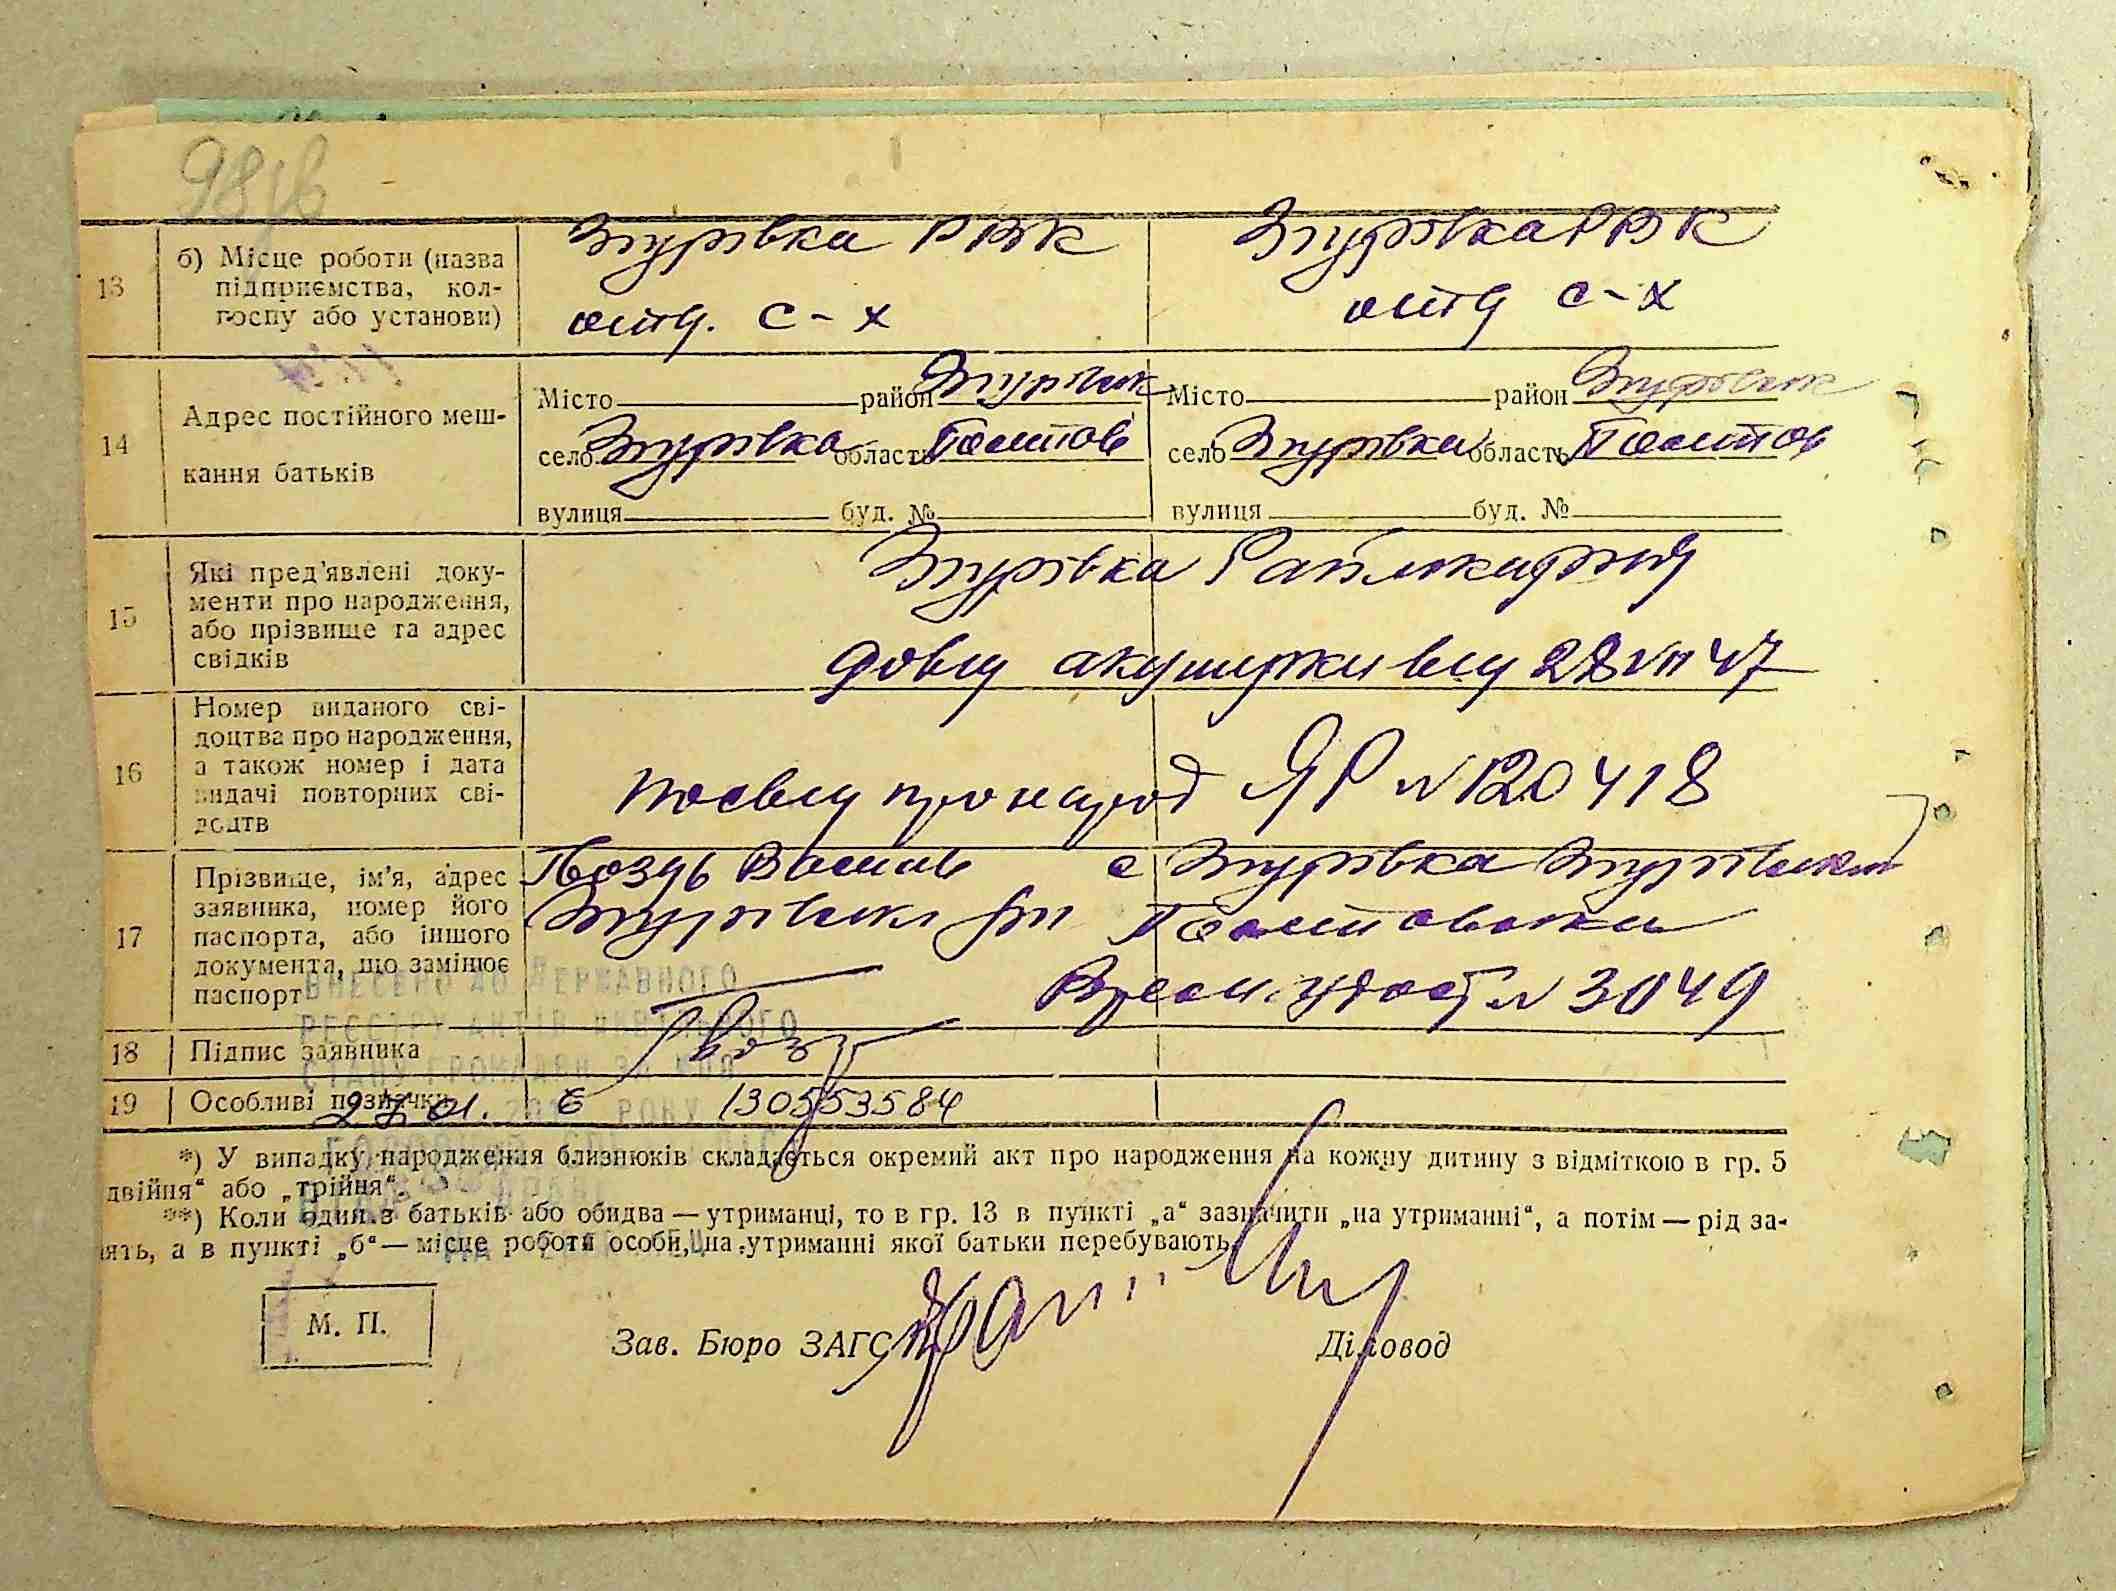 98 зв
13
б) Місце роботи (назва підприємства, колгоспу або установи)
Згурівка РВК
отд. С-х
Згурівка РВК
отд С-х
14
Адрес постійного мешкання батьків
Місто район Згурівськ
село Згурівка область Полтов
вулиця буд. №
Місто район Згурівськ
село Згурівка область Полтов
вулиця буд. №
15
Які пред'явлені документи про народження, або прізвище та адрес свідків
Згурівка
довід акушерки від 28 VII 47
16
Номер виданого свідоцтва про народження, а також номер і дата видачі повторних свідоцтв
посвід про народ ЯР № 120418
17
Прізвище, ім'я, адрес заявника, номер його паспорта, або іншого документа, що замінює паспорт
Гвоздь Василь с Згурівка Згурівський
Полтовська
Времен. удост № 3049
ВНЕСЕНО ДО ДЕРЖАВНОГО
РЕЄСТРУ АКТІВ ЦИВІЛЬНОГО
СТАНУ ГРОМАДЯН ЗА №
18
Підпис заявника
Гвозд
19
Особливі позначки
27.01. РОКУ
1305553584
*) У випадку народження близнюків складається окремий акт про народження на кожну дитину з відміткою в гр. 5
двійня“ або „трійня“.
**) Коли один з батьків або обидва — утриманці, то в гр. 13 в пункті „а“ зазначити „на утриманні“, а потім — рід за-
нять, а в пункті „б“ — місце роботи особи, на утриманні якої батьки перебувають.
М. П.
Зав. Бюро ЗАГС
Діловод